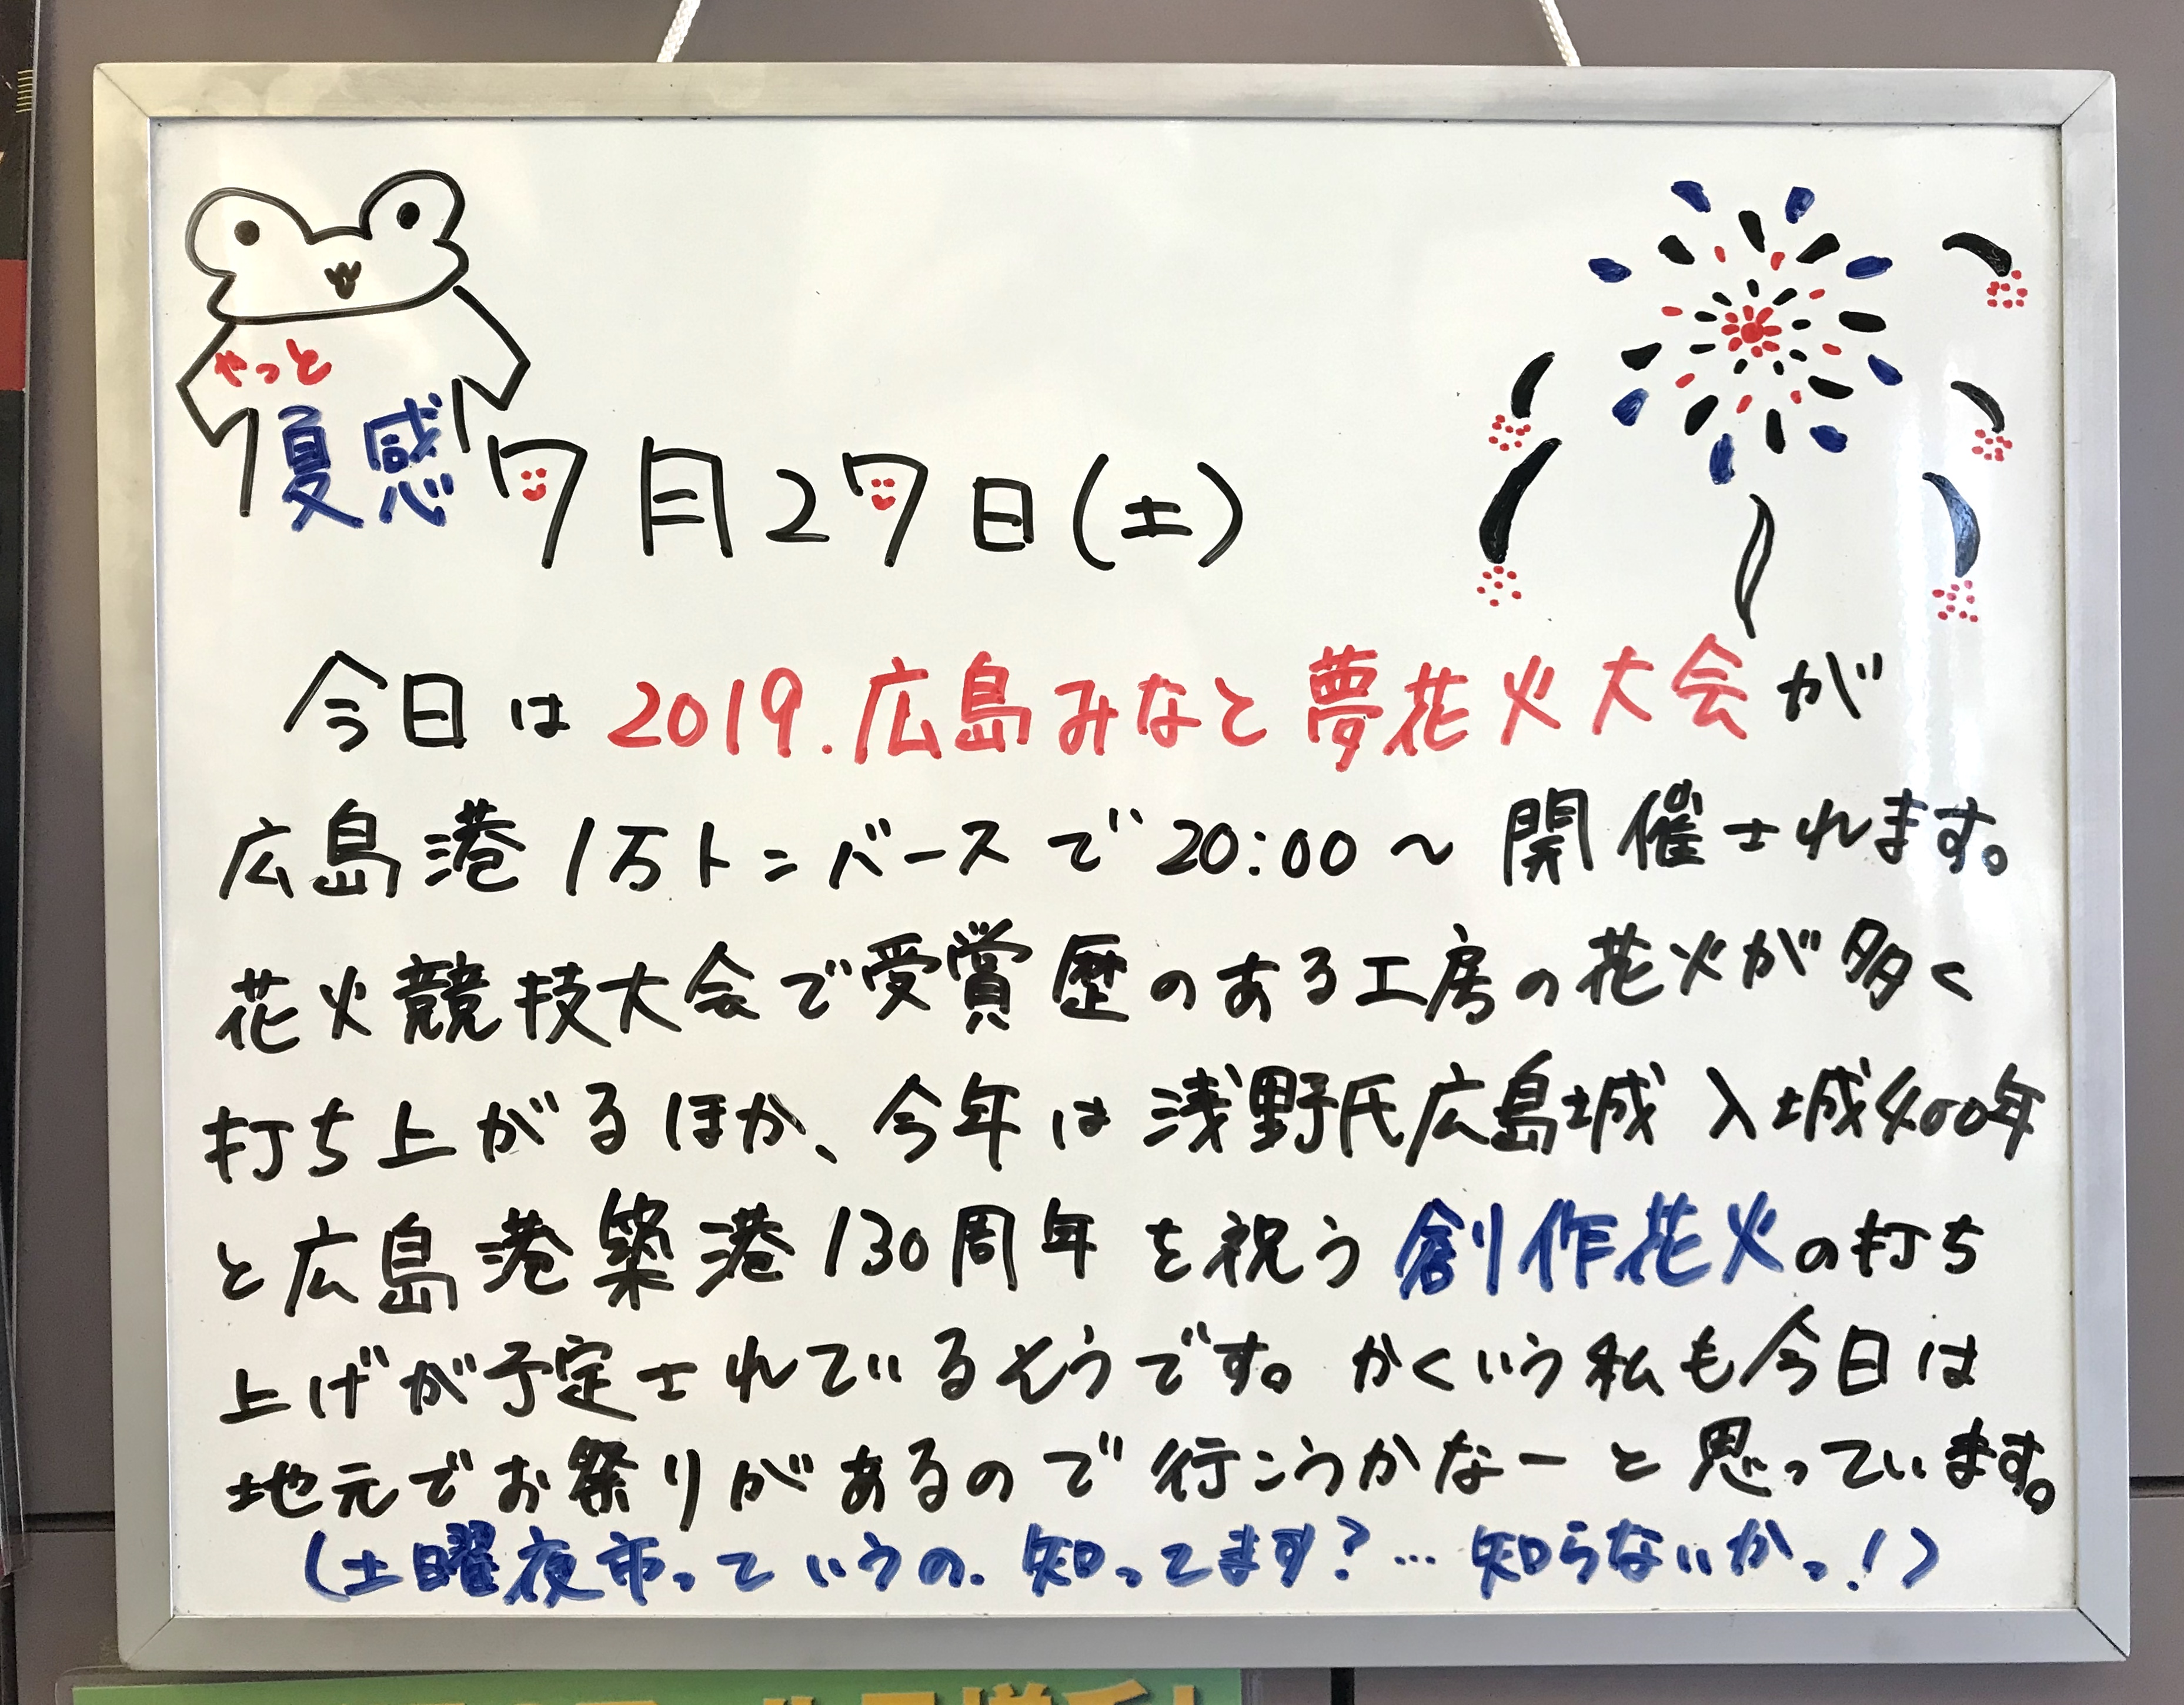 やっと
夏感
7月27日(土)
今日は2019.広島みなと夢花火大会が
広島港1万トンバースで20:00～開催されます。
花火競技大会で受賞歴のある工房の花火が多く
打ち上がるほか、今年は浅野氏広島城入城400年
と広島港築港130周年を祝う創作花火の打ち
上げが予定されているそうです。かくいう私も今日は
地元でお祭りがあるので行こうかなーと思っています。
(土曜夜市っていうの.知ってます?…知らないかっ!)